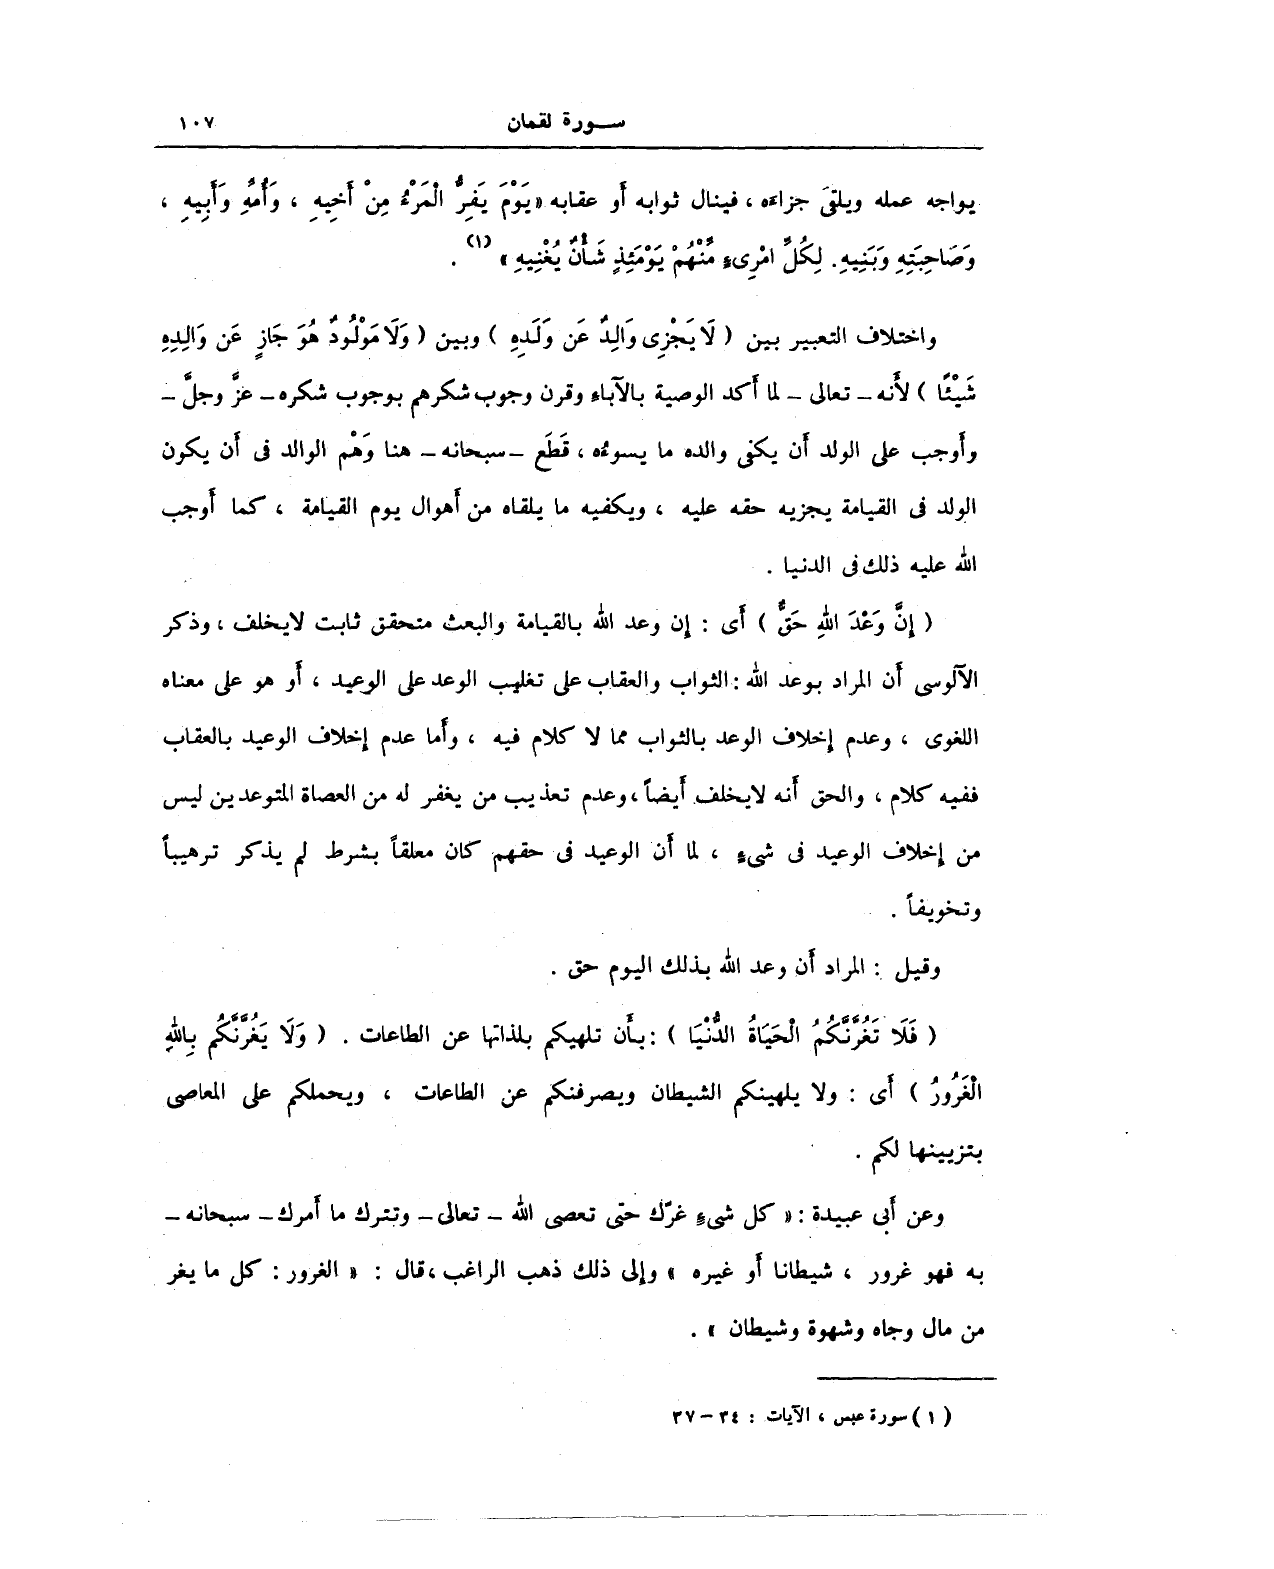 سورة لقمان ١٠٧
يواجه عمله ويلقى جزاءه ، فينال ثوابه أو عقابه « يَوْمَ يَفِرُّ الْمَرْءُ مِنْ أَخِيهِ ، وَأُمِّهِ وَأَبِيهِ ،
وَصَاحِبَتِهِ وَبَنِيهِ . لِكُلِّ امْرِىءٍ مِّنْهُمْ يَوْمَئِذٍ شَأْنٌ يُغْنِيهِ » (١) .
واختلاف التعبير بين ( لَا يَجْزِى وَالِدٌ عَن وَلَدِهِ ) وبين ( وَلَا مَوْلُودٌ هُوَ جَازٍ عَن وَالِدِهِ
شَيْئًا ) لأَنه – تعالى – لما أَكد الوصية بالآباء وقرن وجوب شكرهم بوجوب شكره – عزَّ وجلَّ –
وأَوجب على الولد أَن يكفى والده ما يسوءه ، قَطَع – سبحانه – هنا وَهْم الوالد فى أَن يكون
الولد فى القيامة يجزيه حقه عليه ، ويكفيه ما يلقاه من أَهوال يوم القيامة ، كما أَوجب
الله عليه ذلك فى الدنيا .
( إِنَّ وَعْدَ اللهِ حَقٌّ ) أَى : إِن وعد الله بالقيامة والبعث متحقق ثابت لايخلف ، وذكر
الآلوسى أَن المراد بوعد الله : الثواب والعقاب على تغليب الوعد على الوعيد ، أَو هو على معناه
اللغوى ، وعدم إِخلاف الوعد بالثواب مما لا كلام فيه ، وأَما عدم إِخلاف الوعيد بالعقاب
ففيه كلام ، والحق أَنه لايخلف أَيضاً ، وعدم تعذيب من يغفر له من العصاة المتوعدين ليس
من إِخلاف الوعيد فى شىءٍ ، لما أَن الوعيد فى حقهم كان معلقاً بشرط لم يذكر ترهيباً
وتخويفاً .
وقيل : المراد أَن وعد الله بذلك اليوم حق .
( فَلَا تَغُرَّنَّكُمُ الْحَيَاةُ الدُّنْيَا ) : بأَن تلهيكم بلذاتها عن الطاعات . ( وَلَا يَغُرَّنَّكُم بِاللهِ
الْغَرُورُ ) أَى : ولا يلهينكم الشيطان ويصرفنكم عن الطاعات ، ويحملكم على المعاصى
بتزيينها لكم .
وعن أَبى عبيدة : « كل شىءٍ غرّك حتى تعصى الله – تعالى – وتترك ما أَمرك – سبحانه –
به فهو غرور ، شيطانا أَو غيره » وإِلى ذلك ذهب الراغب ، قال : « الغرور : كل ما يغر
من مال وجاه وشهوة وشيطان » .
( ١ ) سورة عبس ، الآيات : ٣٤ – ٣٧